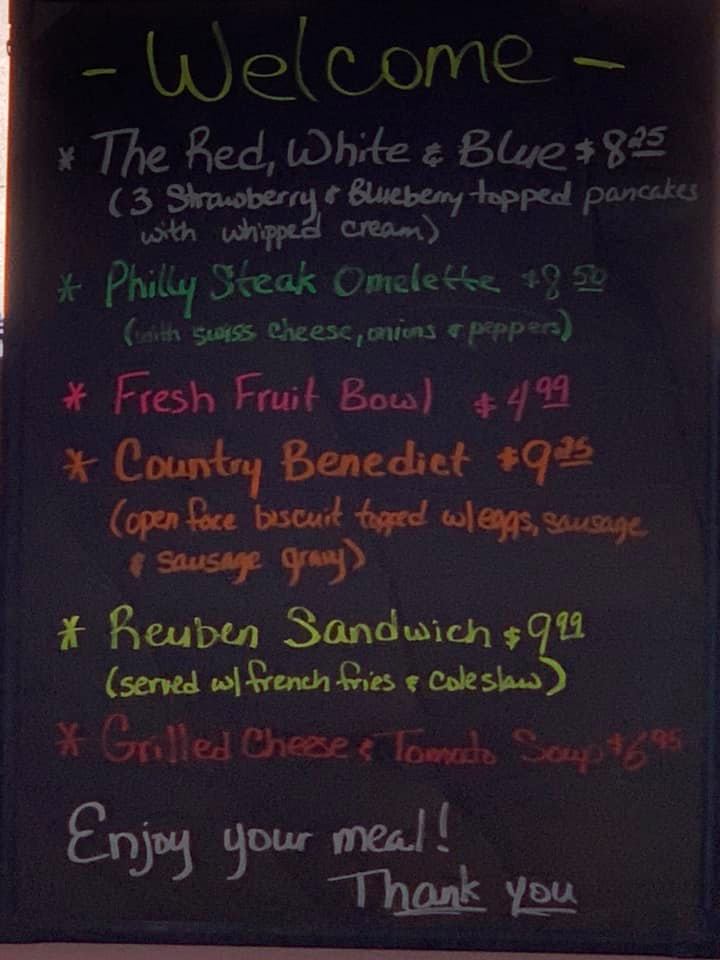 - Welcome -
* The Red, White & Blue $8.25
(3 Strawberry & Blueberry topped pancakes
with whipped cream)
* Philly Steak Omelette $8.50
(with swiss cheese, onions & peppers)
* Fresh Fruit Bowl $4.99
* Country Benedict $9.25
(open face biscuit topped w/eggs, sausage
& sausage gravy)
* Reuben Sandwich $9.99
(served w/ french fries & coleslaw)
* Grilled Cheese & Tomato Soup $6.95
Enjoy your meal!
Thank you